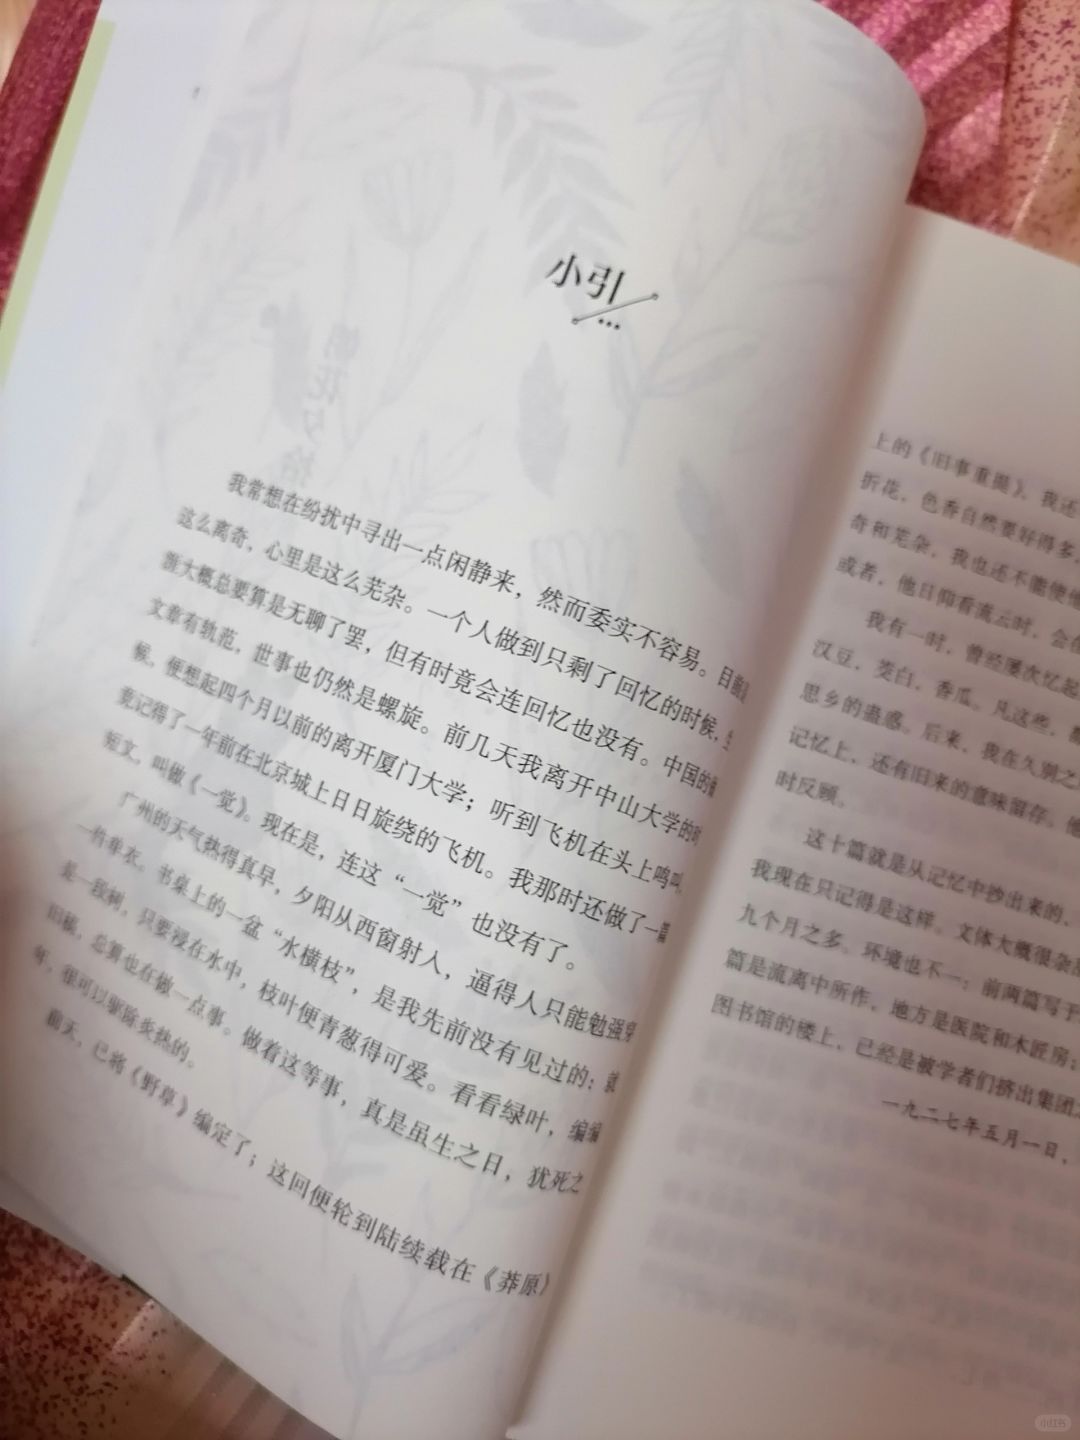 小引
我常想在纷扰中寻出一点闲静来，然而委实不容易。目前是
这么离奇，心里是这么芜杂。一个人做到只剩了回忆的时候，生
涯大概总要算是无聊了罢，但有时竟会连回忆也没有。中国的做
文章有轨范，世事也仍然是螺旋。前几天我离开中山大学的时
候，便想起四个月以前的离开厦门大学；听到飞机在头上鸣叫，
竟记得了一年前在北京城上日日旋绕的飞机。我那时还做了一篇
短文，叫做《一觉》。现在是，连这“一觉”也没有了。
广州的天气热得真早，夕阳从西窗射人，逼得人只能勉强穿
一件单衣。书桌上的一盆“水横枝”，是我先前没有见过的：就
是一段树，只要浸在水中，枝叶便青葱得可爱。看看绿叶，编编
旧稿，总算也在做一点事。做着这等事，真是虽生之日，犹死之
年，很可以驱除炎热的。
前天，已将《野草》编定了；这回便轮到陆续载在《莽原》
上的《旧事重提》，我还
折花，色香自然要好得多，
奇和芜杂，我也还不能使他
或者，他日仰看流云时，会在
我有一时，曾经屡次忆起
汉豆，茭白，香瓜。凡这些，都
思乡的蛊惑。后来，我在久别之
记忆上，还有旧来的意味留存。他
时反顾。
这十篇就是从记忆中抄出来的，
我现在只记得是这样。文体大概很杂
九个月之多。环境也不一：前两篇写于
篇是流离中所作，地方是医院和木匠房；
图书馆的楼上，已经是被学者们挤出集团
一九二七年五月一日，
小红书